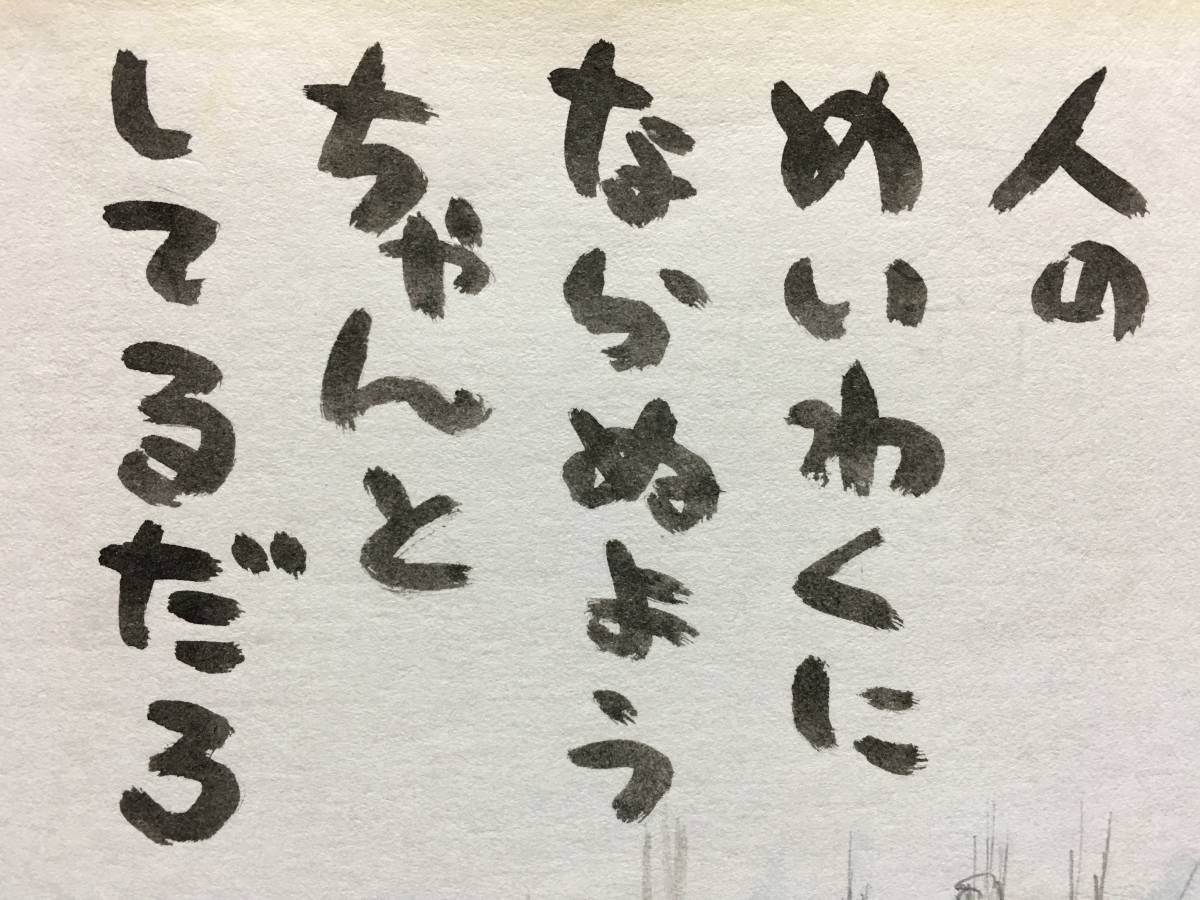 人の
めいわくに
ならぬよう
ちゃんと
してるだろ